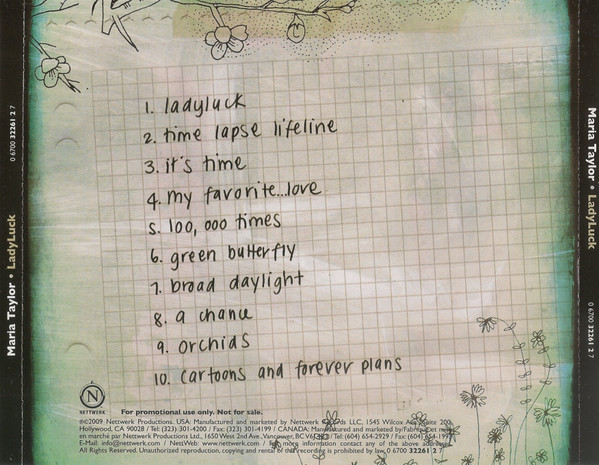 1. ladyluck
2. time lapse lifeline
3. it's time
4. my favorite...love
5. 100,000 times
6. green butterfly
7. broad daylight
8. a chance
9. orchids
10. cartoons and forever plans
NETTWERK
For promotional use only. Not for sale.
℗©2009 Nettwerk Productions. USA: Manufactured and marketed by Nettwerk Records LLC, 1545 Wilcox Ave, Suite 200,
Hollywood, CA 90028 / Tel: (323) 301-4200 / Fax: (323) 301-4199 / CANADA: Manufactured and marketed by/Fabriqué et mis
en marché par Nettwerk Productions Ltd., 1650 West 2nd Ave., Vancouver, BC / Tel: (604) 654-2929 / Fax: (604) 654-1993
E-Mail: info@nettwerk.com / NettWeb: www.nettwerk.com / For more information contact any of the above addresses.
All Rights Reserved. Unauthorized reproduction, copying and rental of this recording is prohibited by law. 0 6700 32261 2 7
Maria Taylor • LadyLuck
0 6700 32261 2 7
Maria Taylor • LadyLuck
0 6700 32261 2 7